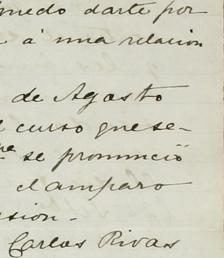 puedo darte por
á una relacion
de Agosto
curso que se-
se pronunció
el amparo
sion.-
Carlos Rivas